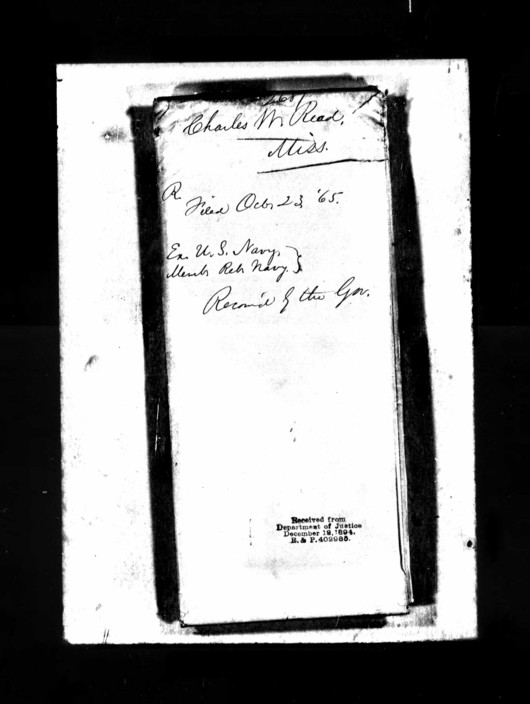 Charles W. Read.
Miss.
R.
Filed Octr 23 '65.
Ex. U. S. Navy,
Memb Reb Navy.
Recom'd by the Gov.
Received from
Department of Justice
December 19, 1894.
R. & P. 402986.